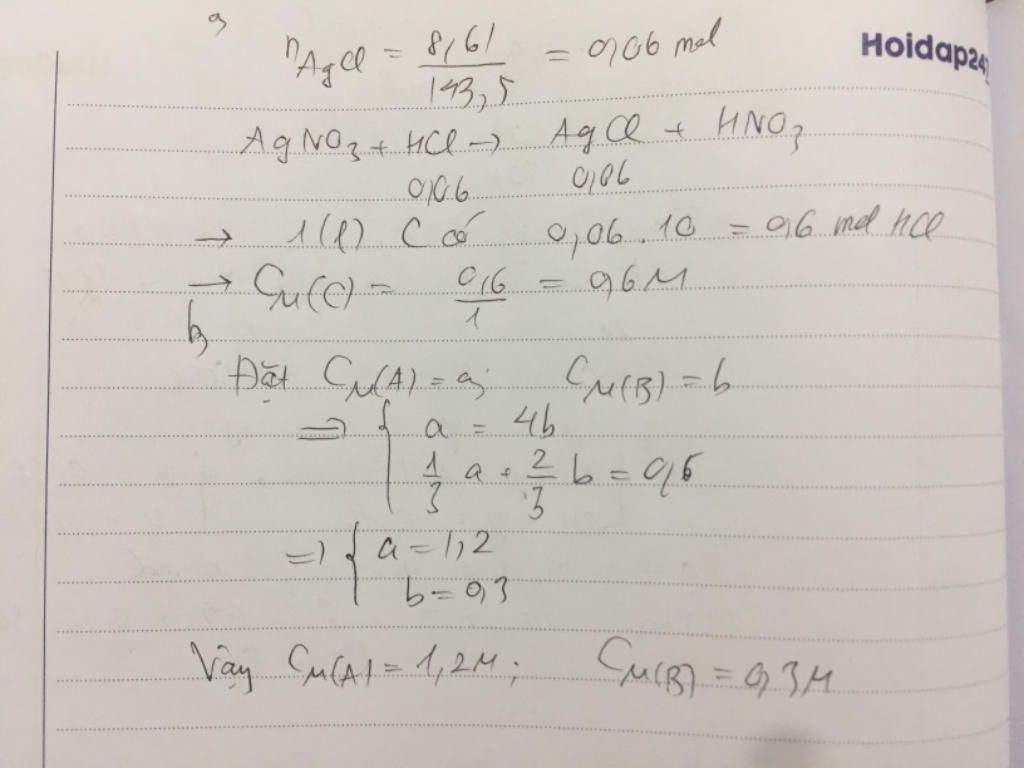 a,
nAgCl = 8,61/143,5 = 0,06 mol
Hoidap247
AgNO3 + HCl → AgCl + HNO3
0,06 0,06
→ 1(l) C có 0,06.10 = 0,6 mol HCl
→ CM(C) = 0,6/1 = 0,6M
b,
Đặt CM(A) = a; CM(B) = b
=> { a = 4b
1/3 a + 2/3 b = 0,6
=> { a = 1,2
b = 0,3
Vậy CM(A) = 1,2M; CM(B) = 0,3M